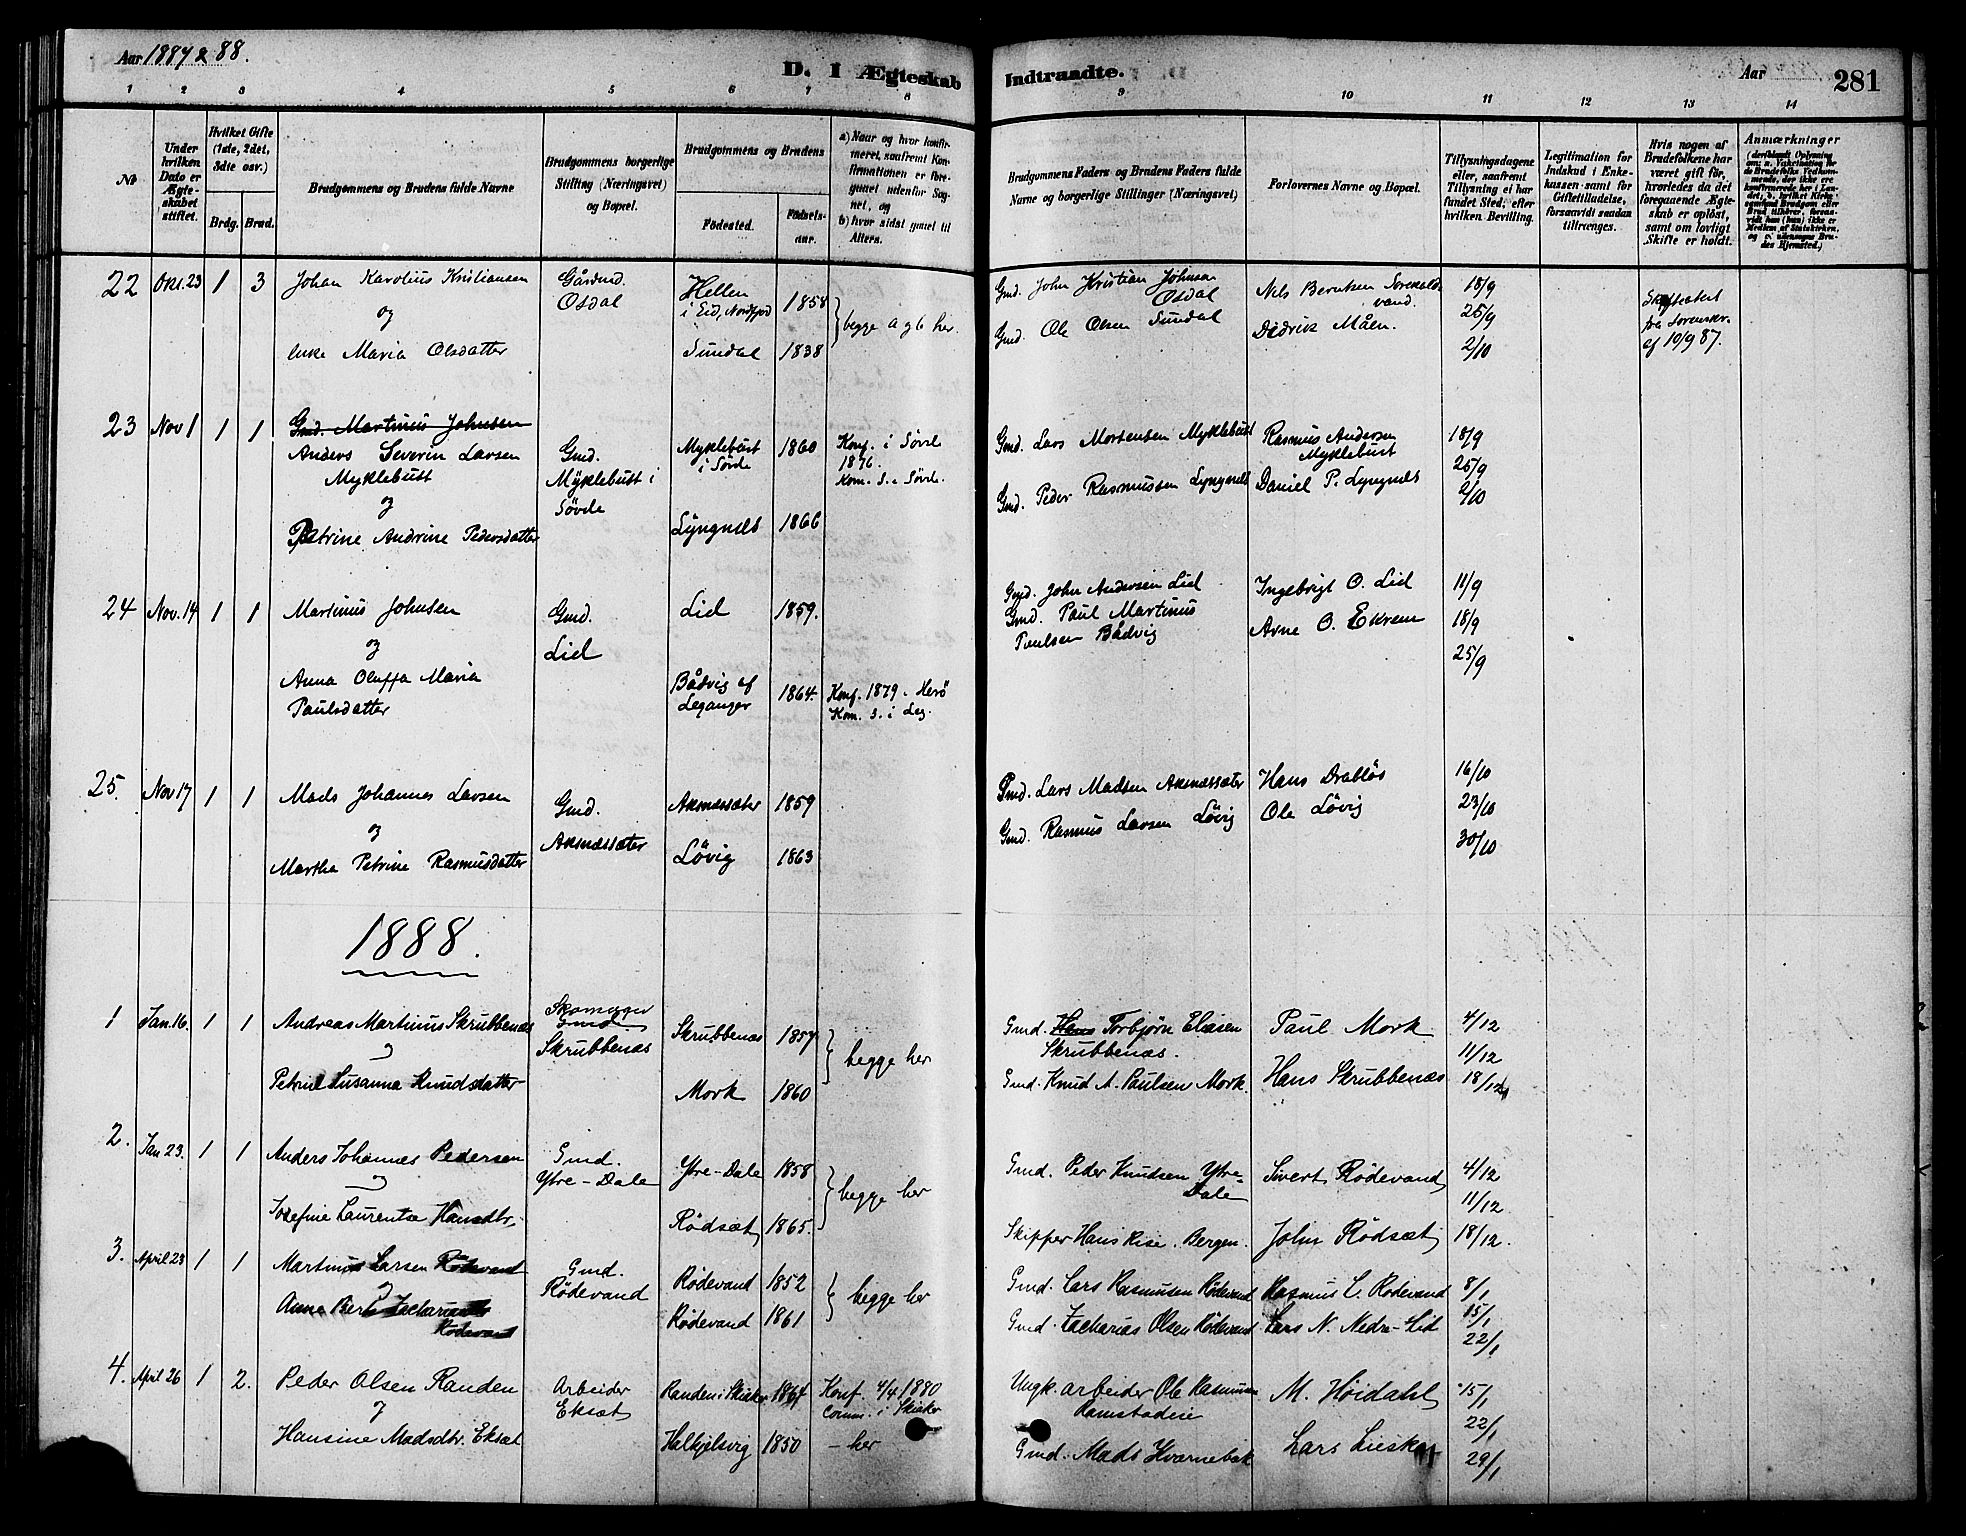 Aar 1887 & 88.
D. 1 Ægteskab Indtraadte.
Aar
281
1 2 3 4 5 6 7 8 9 10 11 12 13 14
No
Under hvilken Dato er Ægteskabet stiftet.
Hvilket Gifte (1ste, 2det, 3die osv.)
Brdg. Brud.
Brudgommens og Brudens fulde Navne
Brudgommens borgerlige Stilling (Næringsvei) og Bopæl.
Brudgommens og Brudens
Fødested.
Fødselsaar.
a) Naar og hvor konfirmeret, saafremt Konfirmationen er foregaaet udenfor Sognet, og
b) hvor sidst gaaet til Alters.
Brudgommens Faders og Brudens Faders fulde Navne og borgerlige Stillinger (Næringsvei)
Forlovernes Navne og Bopæl.
Tillysningsdagene eller, saafremt Tillysning ei har fundet Sted, efter hvilken Bevilling.
Legitimation for Indskud i Enkekassen samt for Giftetilladelse, forsaavidt saadan tiltrænges.
Hvis nogen af Brudefolkene har været gift før, hvorledes da det foregaaende Ægteskab er opløst, samt om lovligt Skifte er holdt.
Anmærkninger
22 Okt. 23 1 3 Johan Karolius Kristiansen
og
enke Maria Olsdatter
Gårdmd.
Osdal
Hellen
i Eid, Nordfjord 1858
Sundal 1838
begge a g b her.
Gmd. John Kristian Johnsen
Osdal
Gmd. Ole Olsen Sundal
Nels Berntsen
Didrik Måen.
18/9
25/9
2/10
Skifteattest
fra Sorenskr.
af 10/9 87.
23 Nov 1 1 1 Gmd. Martinus Johnsen
Anders Severin Larsen
Myklebust
og
Petrine Andrine Pedersdatter
Gmd.
Myklebust i
Søvde
Myklebust
i Søvde 1860
Lyngnes 1866
Konf. i Søvde
1876.
Kom. s. i Søvde.
Gmd. Lars Mortensen Myklebust
Gmd. Peder Rasmussen Lyngnes
Rasmus Andersen
Myklebust
Daniel P. Lyngnes
18/9
25/9
2/10
24 Nov. 14 1 1 Martinus Johnsen
og
Anna Oluffa Maria
Paulsdatter
Gmd.
Lid
Lid 1859.
Bådvig af
Leganger 1864.
Konf. 1879 i Herö
Kom. s. i Leg.
Gmd. John Andersen Lid
Gmd. Paul Martinus
Paulsen Bådvig
Ingebrigt O. Lid
Arne O. Ekrem
11/9
18/9
25/9
25. Nov 17 1 1 Mads Johannes Larsen
og
Martha Petrine Rasmusdatter
Gmd.
Aknæssæter
Aknæssæter 1859
Løvig 1863
Gmd. Lars Madsen Aknæssæter
Gmd. Rasmus Larsen Løvig
Hans Drabløs
Ole Løvig
16/10
23/10
30/10
1888.
1 Jan. 16. 1 1 Andreas Martinus Skrubbenæs
og
Petrine Susanna Knudsdatter
Skomager
Gmd
Skrubbenæs
Skrubbenæs 1857
Mork 1860
begge her
Gmd. Hans Torbjørn Eliasen
Skrubbenæs.
Gmd. Knud A. Paulsen Mork.
Paul Mork
Hans Skrubbenæs
4/12
11/12
18/12
2. Jan 23. 1 1 Anders Johannes Pedersen
og
Josefine Laurentse Hansdtr.
Gmd.
Ytre-Dale
Ytre-Dale 1858
Rødsæt 1865.
begge her
Gmd. Peder Knudsen Ytre-
Dale
Skipper Hans Rise. Bergen.
Sivert Rødevand
John Rødsæt
4/12
11/12
18/12.
3. April 23 1 1 Martinus Larsen Rødevand
og
Anna Berte Zachariasdtr
Rødevand
Gmd.
Rødevand
Rødevand 1852
Rødevand 1861
begge her
Gmd. Lars Rasmussen Rødevand
Gmd. Zacharias Olsen Rødevand
Rasmus L. Rødevand
Lars N. Nedre-Lid
8/1
15/1
22/1
4. April 26 1 2. Peder Olsen Randen
og
Hansine Madsdtr. Eksæt
Arbeider
Eksæt
Randen i Skiaker 1864
Halkjelsvig 1850
Konf. 4/4 1880
Comm. i Skiaker
- her
Ungk. arbeider Ole Rasmussen
Ramstadeie
Gmd. Mads Kvernebak
M. Høidahl
Lars
15/1
22/1
29/1